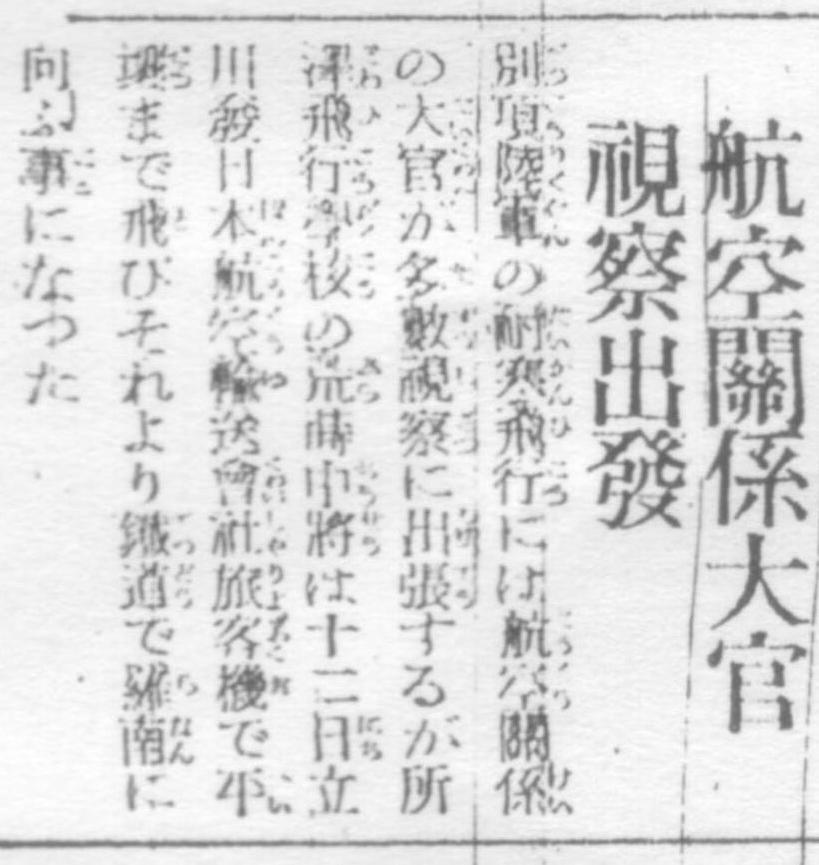 航空關係大官
視察出發
別項陸軍の耐寒飛行には航空關係
の大官が多數視察に出張するが所
澤飛行學校の荒蒔中將は十二日立
川發日本航空輸送會社旅客機で平
壤まで飛びそれより鐵道で羅南に
向ふ事になつた